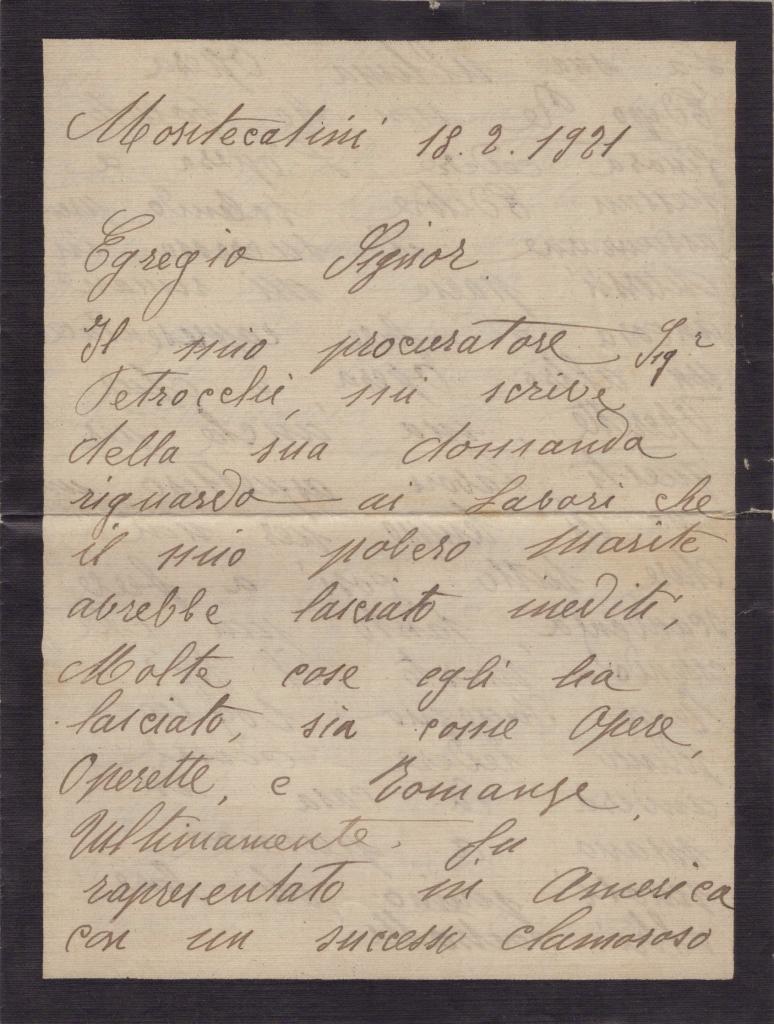 Montecatini 18.2.1921
Egregio Signor
Il mio procuratore Sigr
Petrocchi, mi scrive
della sua domanda
riguardo ai lavori che
il mio povero marito
avrebbe lasciato inediti,
Molte cose egli ha
lasciato, sia come Opere,
Operette, e Romanze,
Ultimamente. fu
rapresentato in America
con un successo clamoroso